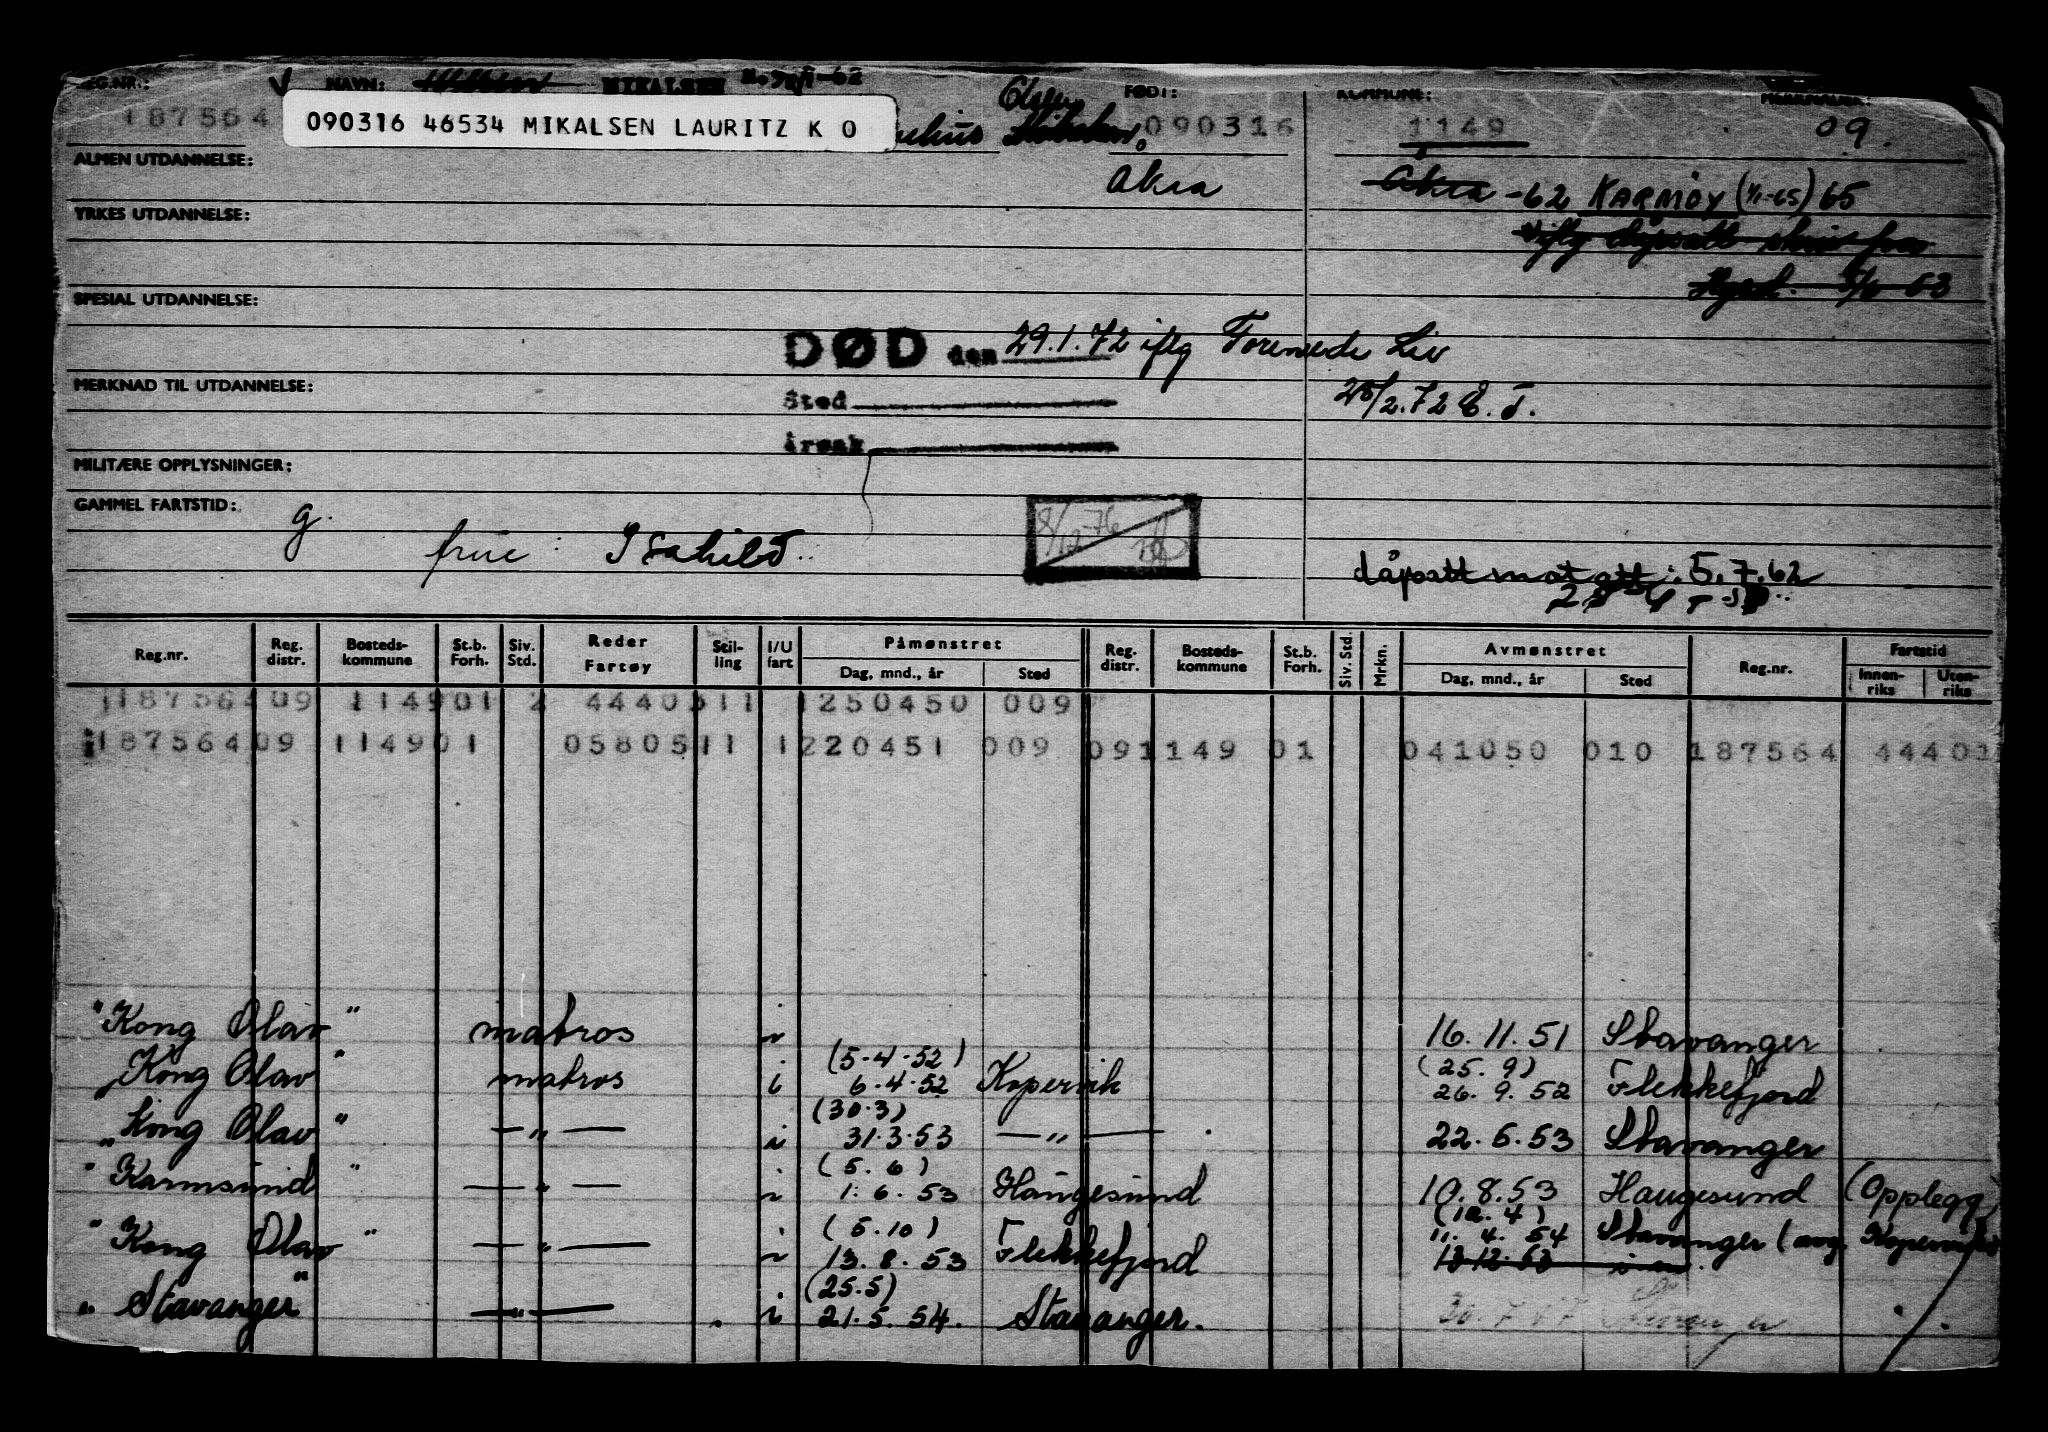 REG.NR.: V NAVN: MIKALSEN FØDT: KOMMUNE:
187564 090316 46534 MIKALSEN LAURITZ K O Olsen 090316 1149 09.
ALMEN UTDANNELSE: Åkra Åkra -62 KARMØY (1/1-65) 65
YRKES UTDANNELSE:
63
SPESIAL UTDANNELSE:
DØD den 29.1.72 iflg Forenede Liv
MERKNAD TIL UTDANNELSE: 28/2.72 E.T.
Sted
Årsak
MILITÆRE OPPLYSNINGER:
GAMMEL FARTSTID: g.
frue: Isahild.. 8/12-76
dåpsatt mot att: 5.7.62
Reg.nr. Reg. distr. Bosteds-kommune St.b. Forh. Siv. Std. Reder Fartøy Stil-ling I/U fart Påmønstret Dag, mnd., år Sted Reg. distr. Bosteds-kommune St.b. Forh. Siv. Std. Mrkn. Avmønstret Dag, mnd., år Sted Reg.nr. Fartstid Innen-riks Uten-riks
187564 09 1149 01 2 4440311 1 250450 009
187564 09 1149 01 0580511 1 220451 009 09 1149 01 041050 010 187564 44401
"Kong Olav" matros i 16.11.51 Stavanger
(5.4.52) (25.9)
"Kong Olav" matros i 6.4.52 Kopervik 26.9.52 Flekkefjord
(30.3)
"Kong Olav" — " — i 31.3.53 — " — 22.5.53 Stavanger
(5.6)
"Karmsund" — " — i 1.6.53 Haugesund 10.8.53 Haugesund (Opplegg)
(5.10) (12.4)
"Kong Olav" — " — i 13.8.53 Flekkefjord 11.4.54 Stavanger (avg. Kopervik)
13.12.53
(25.5)
"Stavanger" — " — i 21.5.54. Stavanger.